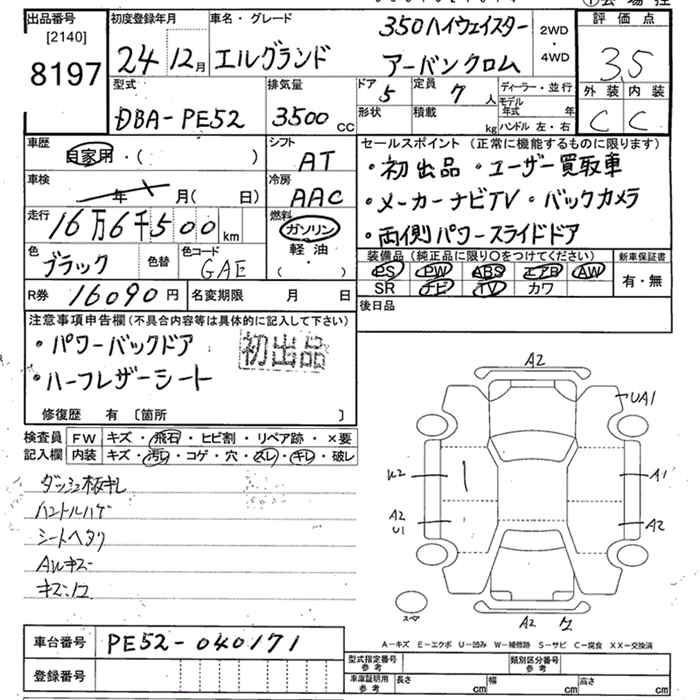 出品番号
[2140]
8197
初度登録年月
24 12月
車名・グレード
エルグランド
350ハイウェイスター
アーバンクロム
2WD
・
4WD
評価点
3.5
外装 内装
C C
型式
DBA-PE52
排気量
3500 CC
ドア 5
定員 7 人
形状
積載 kg
ディーラー・並行
モデル年式 年
ハンドル 左・右
車歴
自家用・( )
シフト
AT
車検
年 月( 日)
冷房
AAC
走行
16万6千500km
燃料
ガソリン
・
軽油
( )
色
ブラック
色替
色コード
GAE
R券 16090円
名変期限 月 日
セールスポイント (正常に機能するものに限ります)
・初出品 ・ユーザー買取車
・メーカーナビTV・バックカメラ
・両側パワースライドドア
装備品(純正品に限り〇をつけてください)
PS PW ABS エアB AW
SR ナビ TV カワ
新車保証書
有・無
後日品
注意事項申告欄(不具合内容等は具体的に記入して下さい)
・パワーバックドア
・ハーフレザーシート
初出品
修復歴 有〔箇所 〕
検査員記入欄
FW キズ・飛石・ヒビ割・リペア跡・×要
内装 キズ・汚レ・コゲ・穴・スレ・キレ・破レ
ダッシュ板キレ
ハンドルハゲ
シートヘタリ
AWキズ
A2
UA1
W2
A1
A2
U1
A2
スペア
A2
A-キズ E-エクボ U-凹み W-補修跡 S-サビ C-腐食 XX-交換済
車台番号 PE52-040171
登録番号
型式指定番号 参考
類別区分番号 参考
車庫証明用 参考
長さ cm 幅 cm 高さ cm